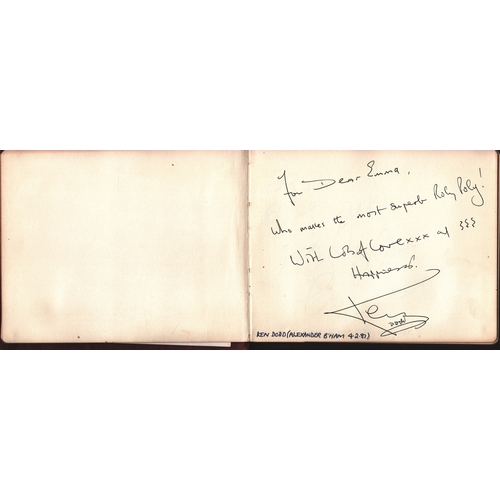 For Dear Emma,
Who makes the most superb Roly Poly!
With Lots of Love xxx and }}}
Happiness.
Ken
DODD
KEN DODD (ALEXANDER B'HAM 4.2.81)